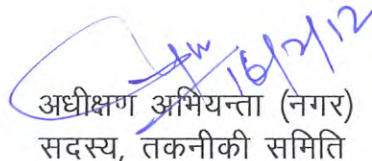 16/2/12
अधीक्षण अभियन्ता (नगर)
सदस्य, तकनीकी समिति